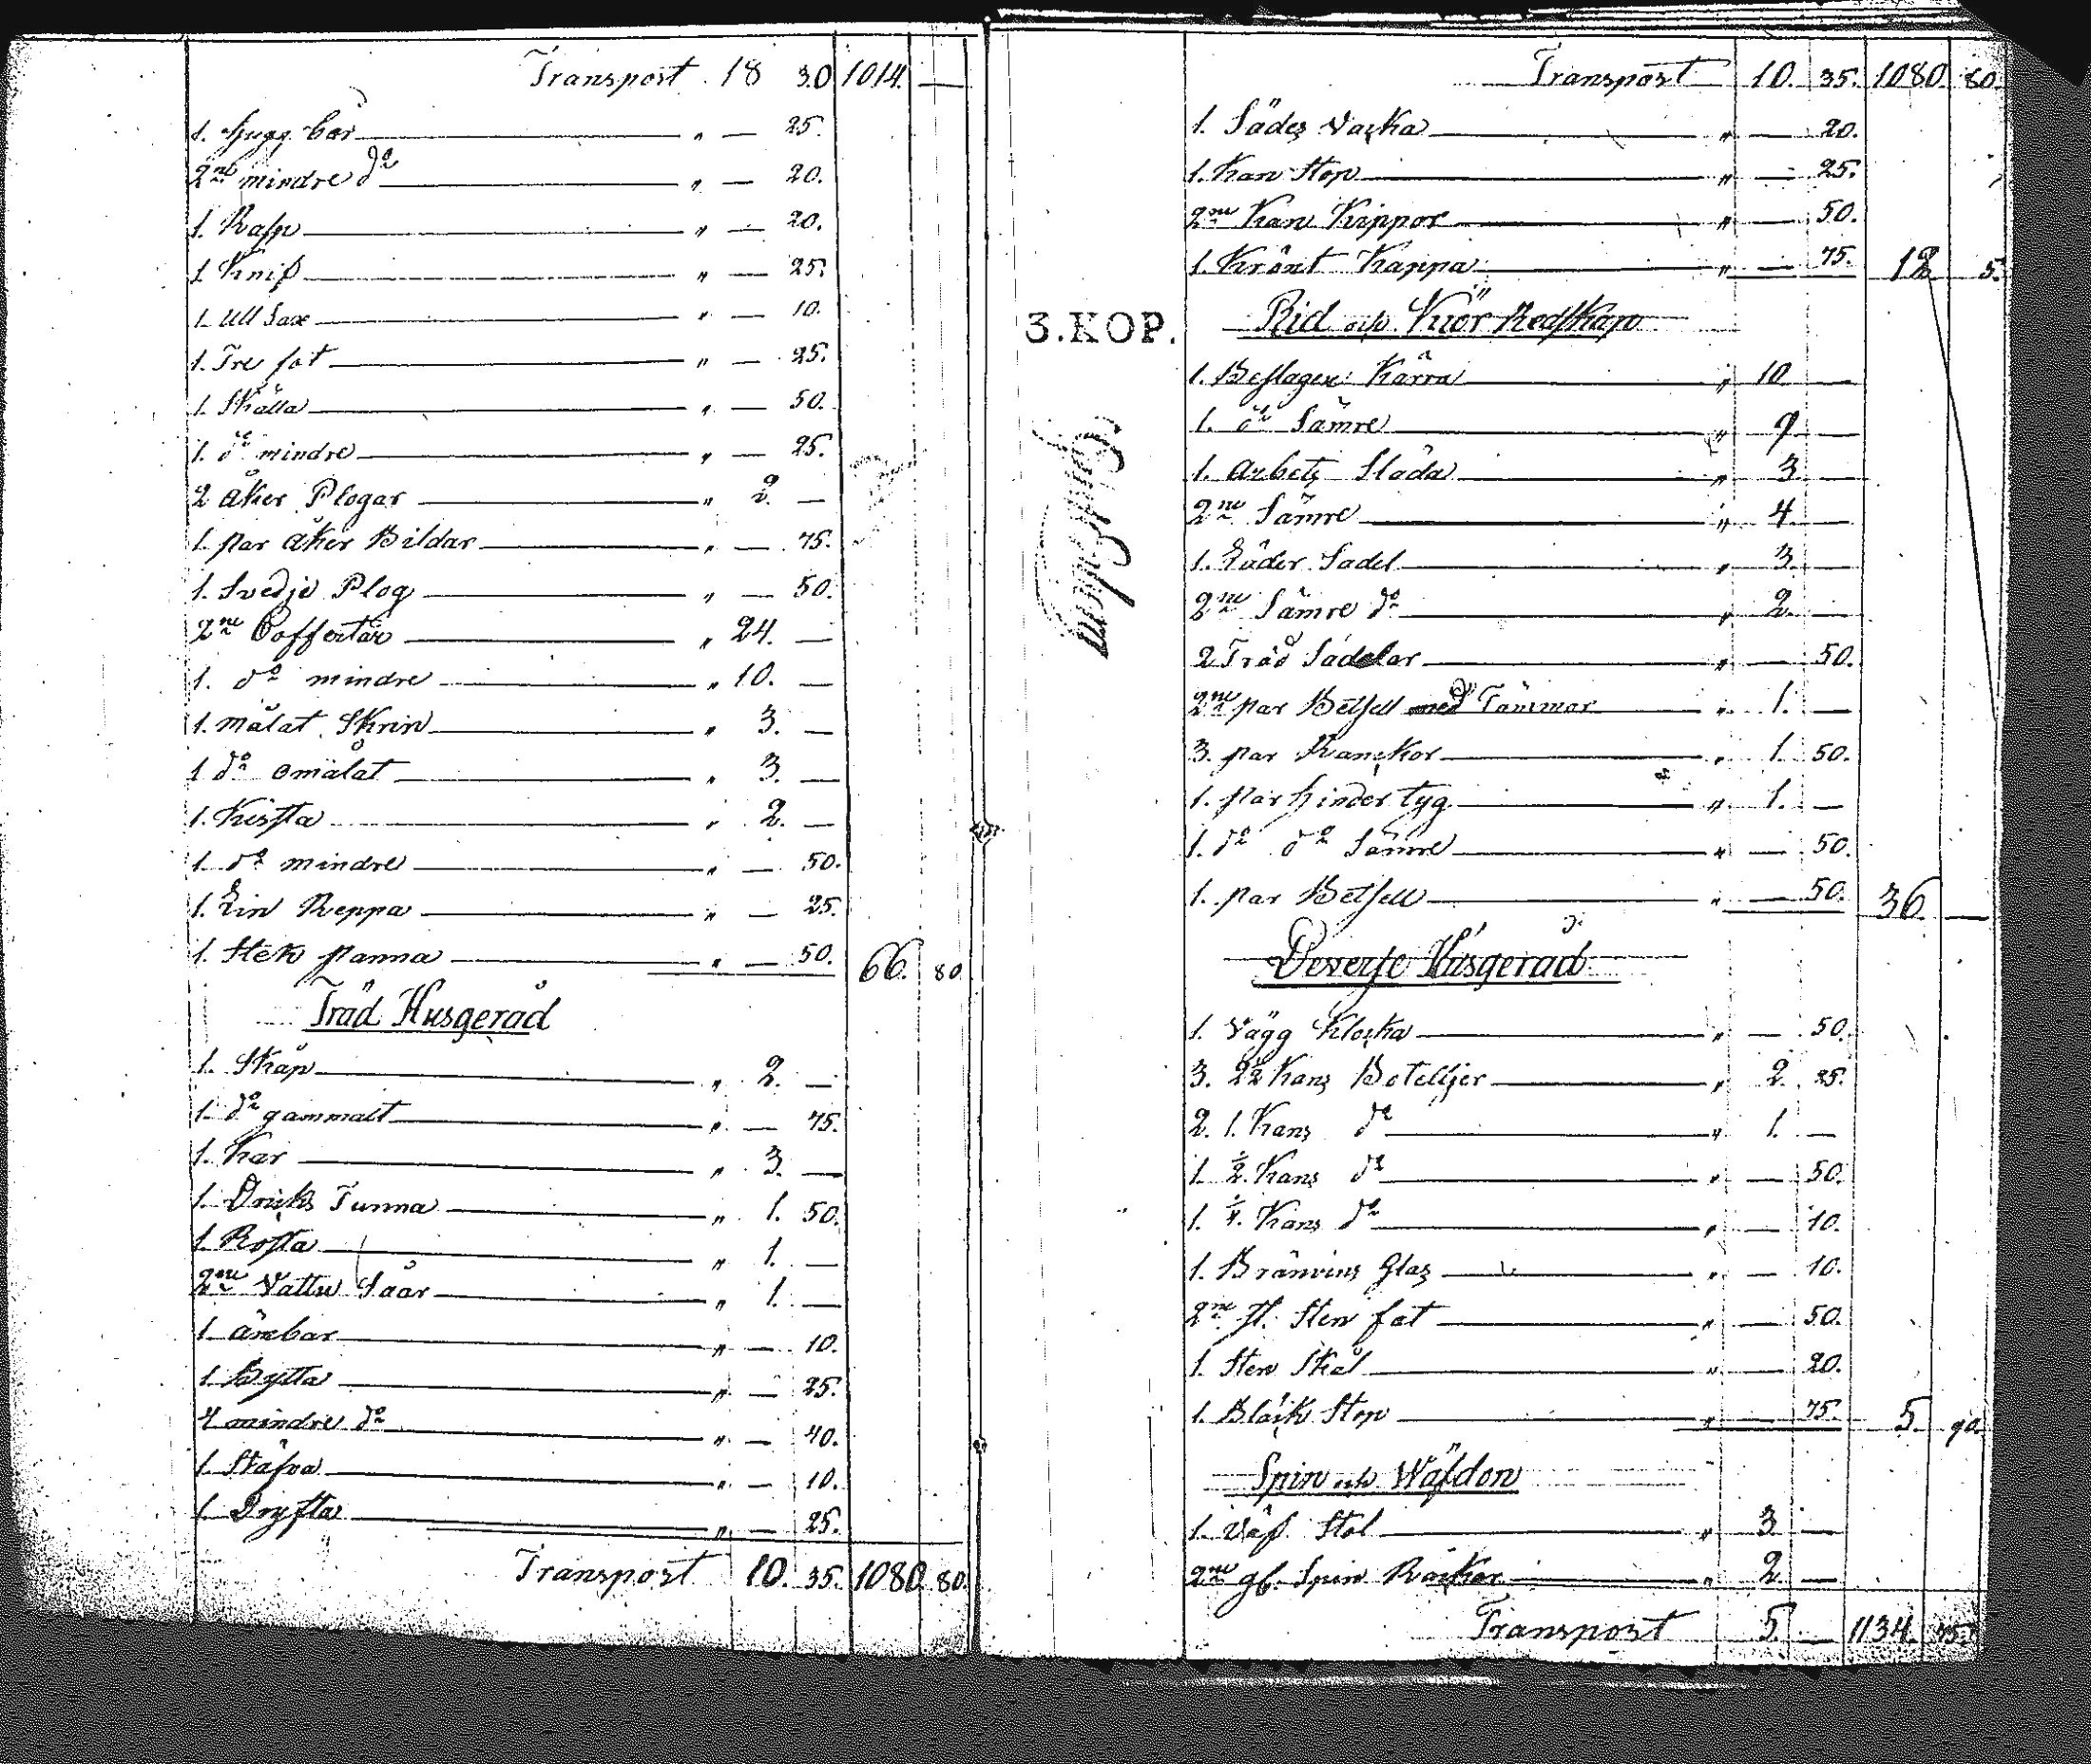 Transport 18 30 1014. —
1. Hugg bår " — 25.
2ne mindre do " — 20.
1. Rasp " — 20.
1 Knif " — 25.
1 Ull Sax " — 10.
1. Tre fot " — 25.
1. Skälla " — 50.
1. do mindre " — 25.
2 Åker Plogar " 2. —
1. par Åker Bildar " — 75.
1. Svedje Plog " — 50.
2ne Coffertar " 24. —
1. do mindre " 10. —
1. målat Skrin " 3. —
1 do omålat " 3. —
1. Kista " 2. —
1. do mindre " — 50.
1. Lin Reppa " — 25.
1. Stek panna " — 50. 66. 80
Träd Husgeråd
1. Skåp " 2. —
1. do gammalt " — 75.
1. Kar " 3. —
1. Dricks Tunna " 1. 50.
1. Rosta " 1. —
2ne Vattu Såar " 1. —
1 ämbar " — 10.
1. Bytta " — 25.
4 mindre do " — 40.
1. Stäfva " — 10.
1. Dryfta " — 25.
Transport 10. 35. 1080. 80.
Transport 10. 35. 1080. 80.
1. Sädes Vacka " — 20.
1. Kan Stop " — 25.
2ne Kan Kippor " — 50.
1. Krönt Kappa " — 75. 12 5.
3.KOP.
Rid och Kuör Redskap
1. Beslagen Kärra " 10 —
1. do Sämre " 7 —
1. Arbets Släda " 3. —
2ne Sämre " 4. —
1. Läder Sadel " 3. —
2ne Sämre do " 2. —
2 Träd Sadelar " — 50.
2ne par Betsell med Tömmar " 1. —
3. par Ranckor " 1. 50.
1. par hinder tyg " 1. —
1. do do Sämre " — 50.
1. par Betsell " — 50. 36 —
Deverse Husgeråd
1. Vägg Klocka " — 50.
3. 2½ Kans Botelljer " 2. 25.
2. 1. Kans do " 1. —
1 ½ Kans do " — 50.
1. ¼ Kans do " — 10.
1. Bränvins Glas " — 10.
2ne st. Sten fat " — 50.
1. Sten Skål " — 20.
1. Bläck Stop " — 75. 5. 90.
Spin och Wäfdon
1. Väf Stol " 3 —
2ne gl. Spin Råckar " 2. —
Transport 5. — 1134. 75.